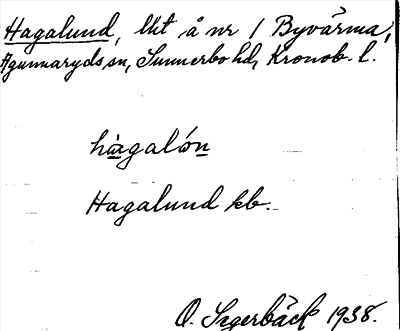 Hagalund, lht å nr 1 Byvärma,
Agunnaryds sn, Sunnerbo hd, Kronob. l.
hàgalón
Hagalund kb.
O. Sagerbäck 1938.